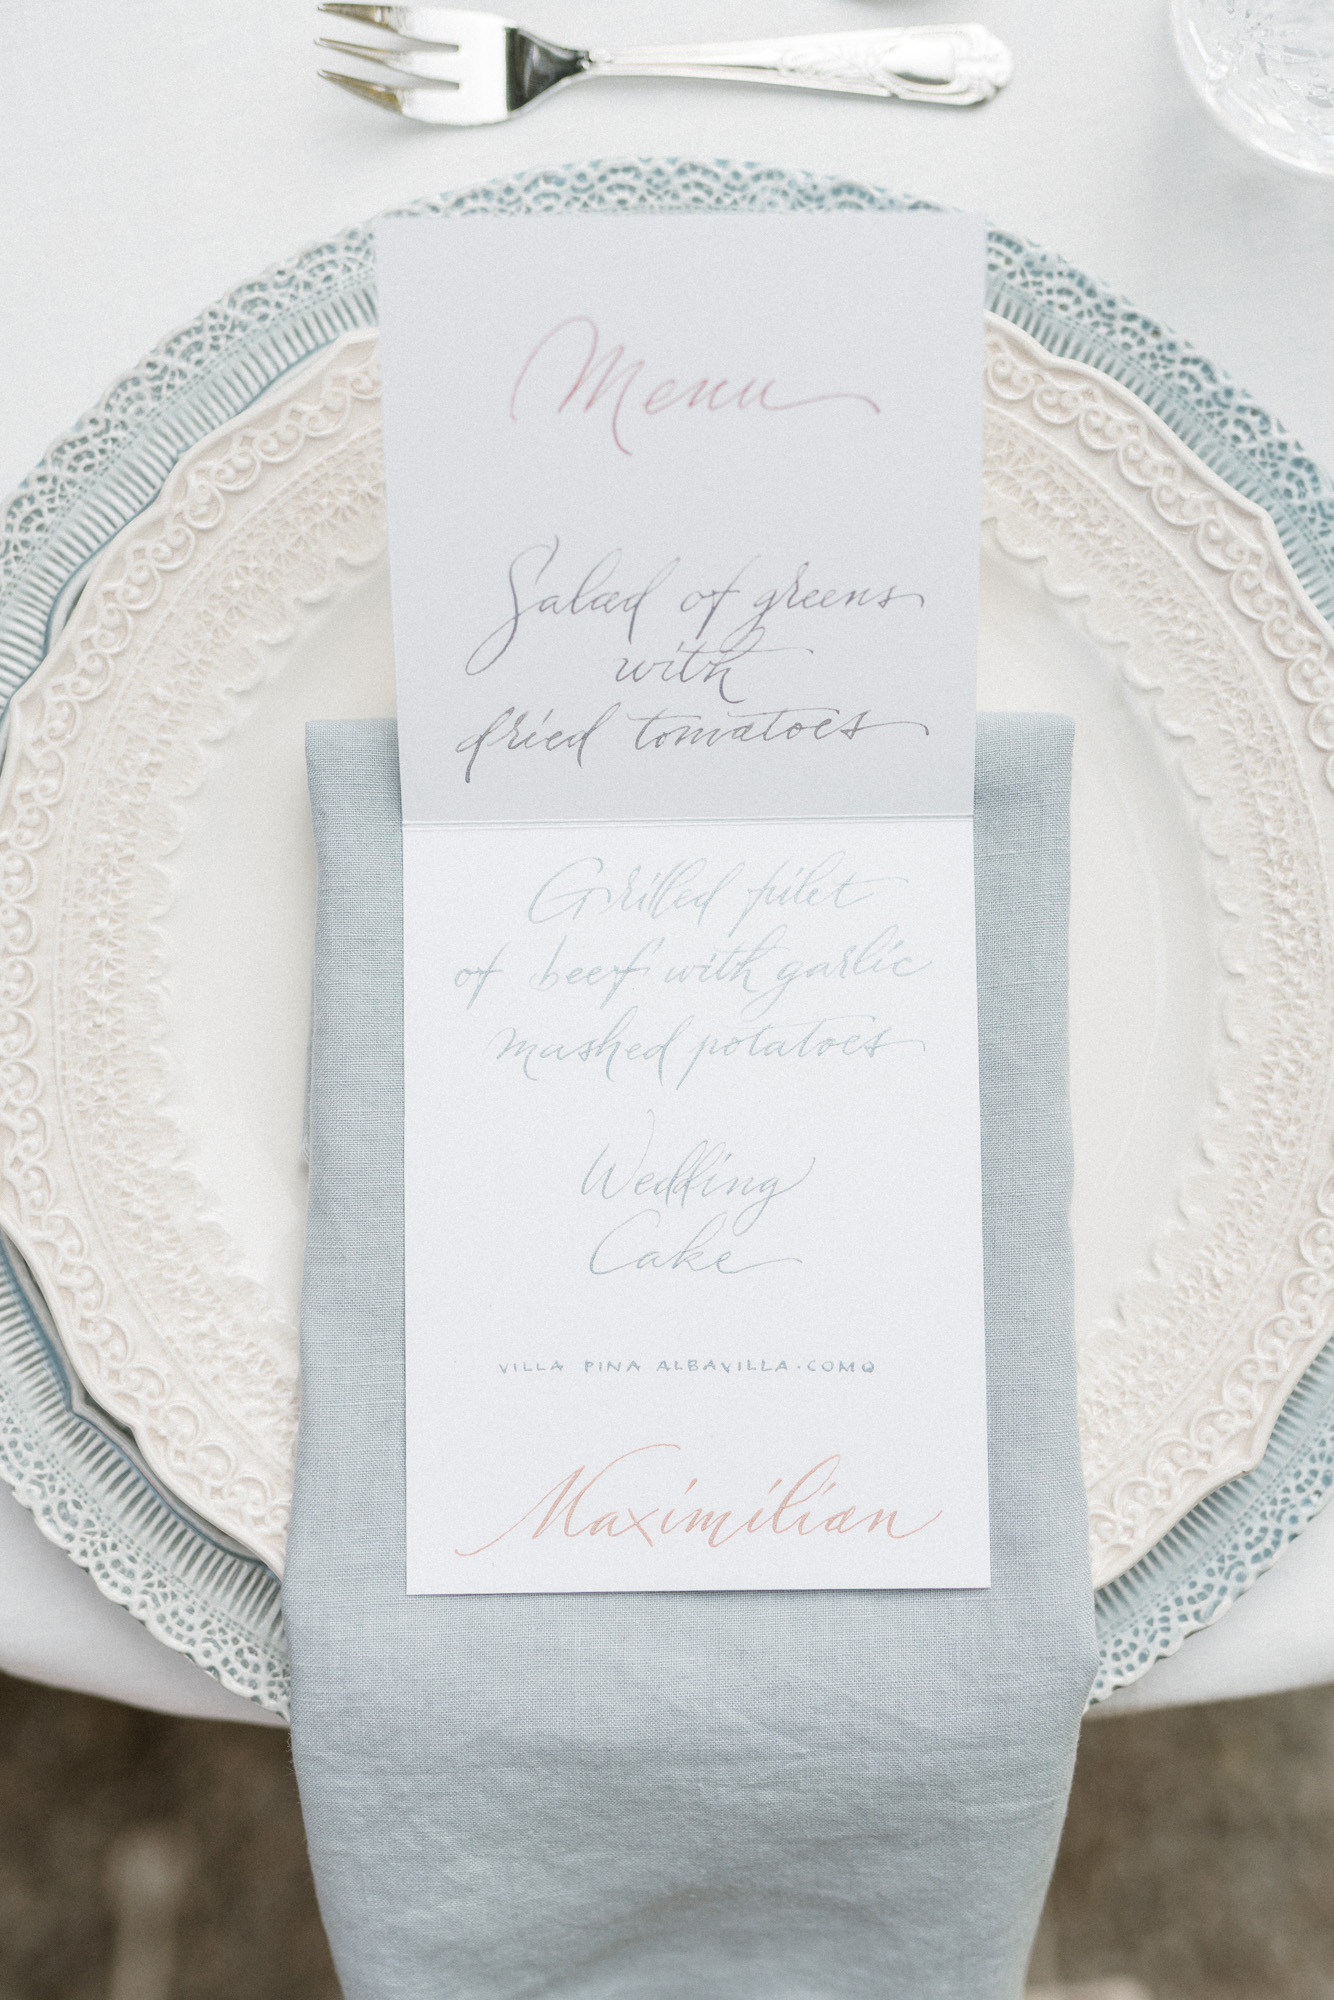 Menu
Salad of greens
with
dried tomatoes
Grilled filet
of beef with garlic
mashed potatoes
Wedding
Cake
VILLA PINA ALBAVILLA · COMO
Maximilian